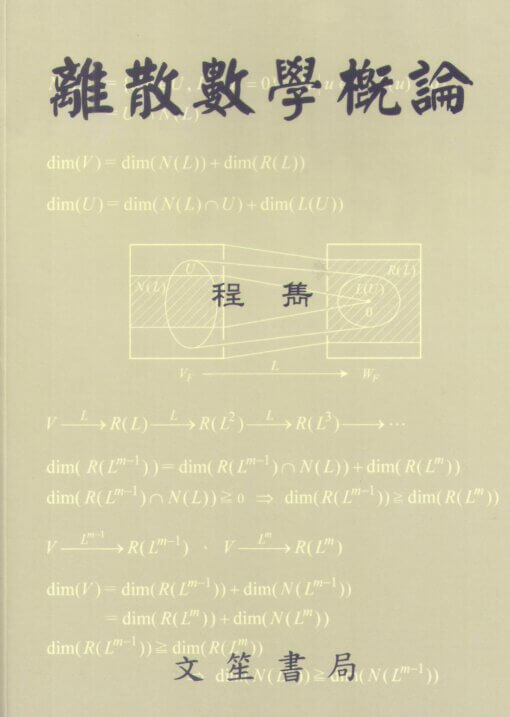 離散數學概論
dim(V) = dim(N(L)) + dim(R(L))
dim(U) = dim(N(L)∩U) + dim(L(U))
U
N(L)
R(L)
L(U)
0
程 雋
V_F
L
W_F
V —L→ R(L) —L→ R(L²) —L→ R(L³) ⟶ ⋯
dim( R(L^{m-1})) = dim(R(L^{m-1})∩N(L)) + dim(R(L^m))
dim( R(L^{m-1})∩N(L)) ≧ 0 ⇒ dim(R(L^{m-1})) ≧ dim(R(L^m))
V —L^{m-1}→ R(L^{m-1}) 、 V —L^m→ R(L^m)
dim(V) = dim(R(L^{m-1})) + dim(N(L^{m-1}))
= dim(R(L^m)) + dim(N(L^m))
dim(R(L^{m-1})) ≧ dim(R(L^m))
文笙書局
dim(N(L^m)) ≧ dim(N(L^{m-1}))